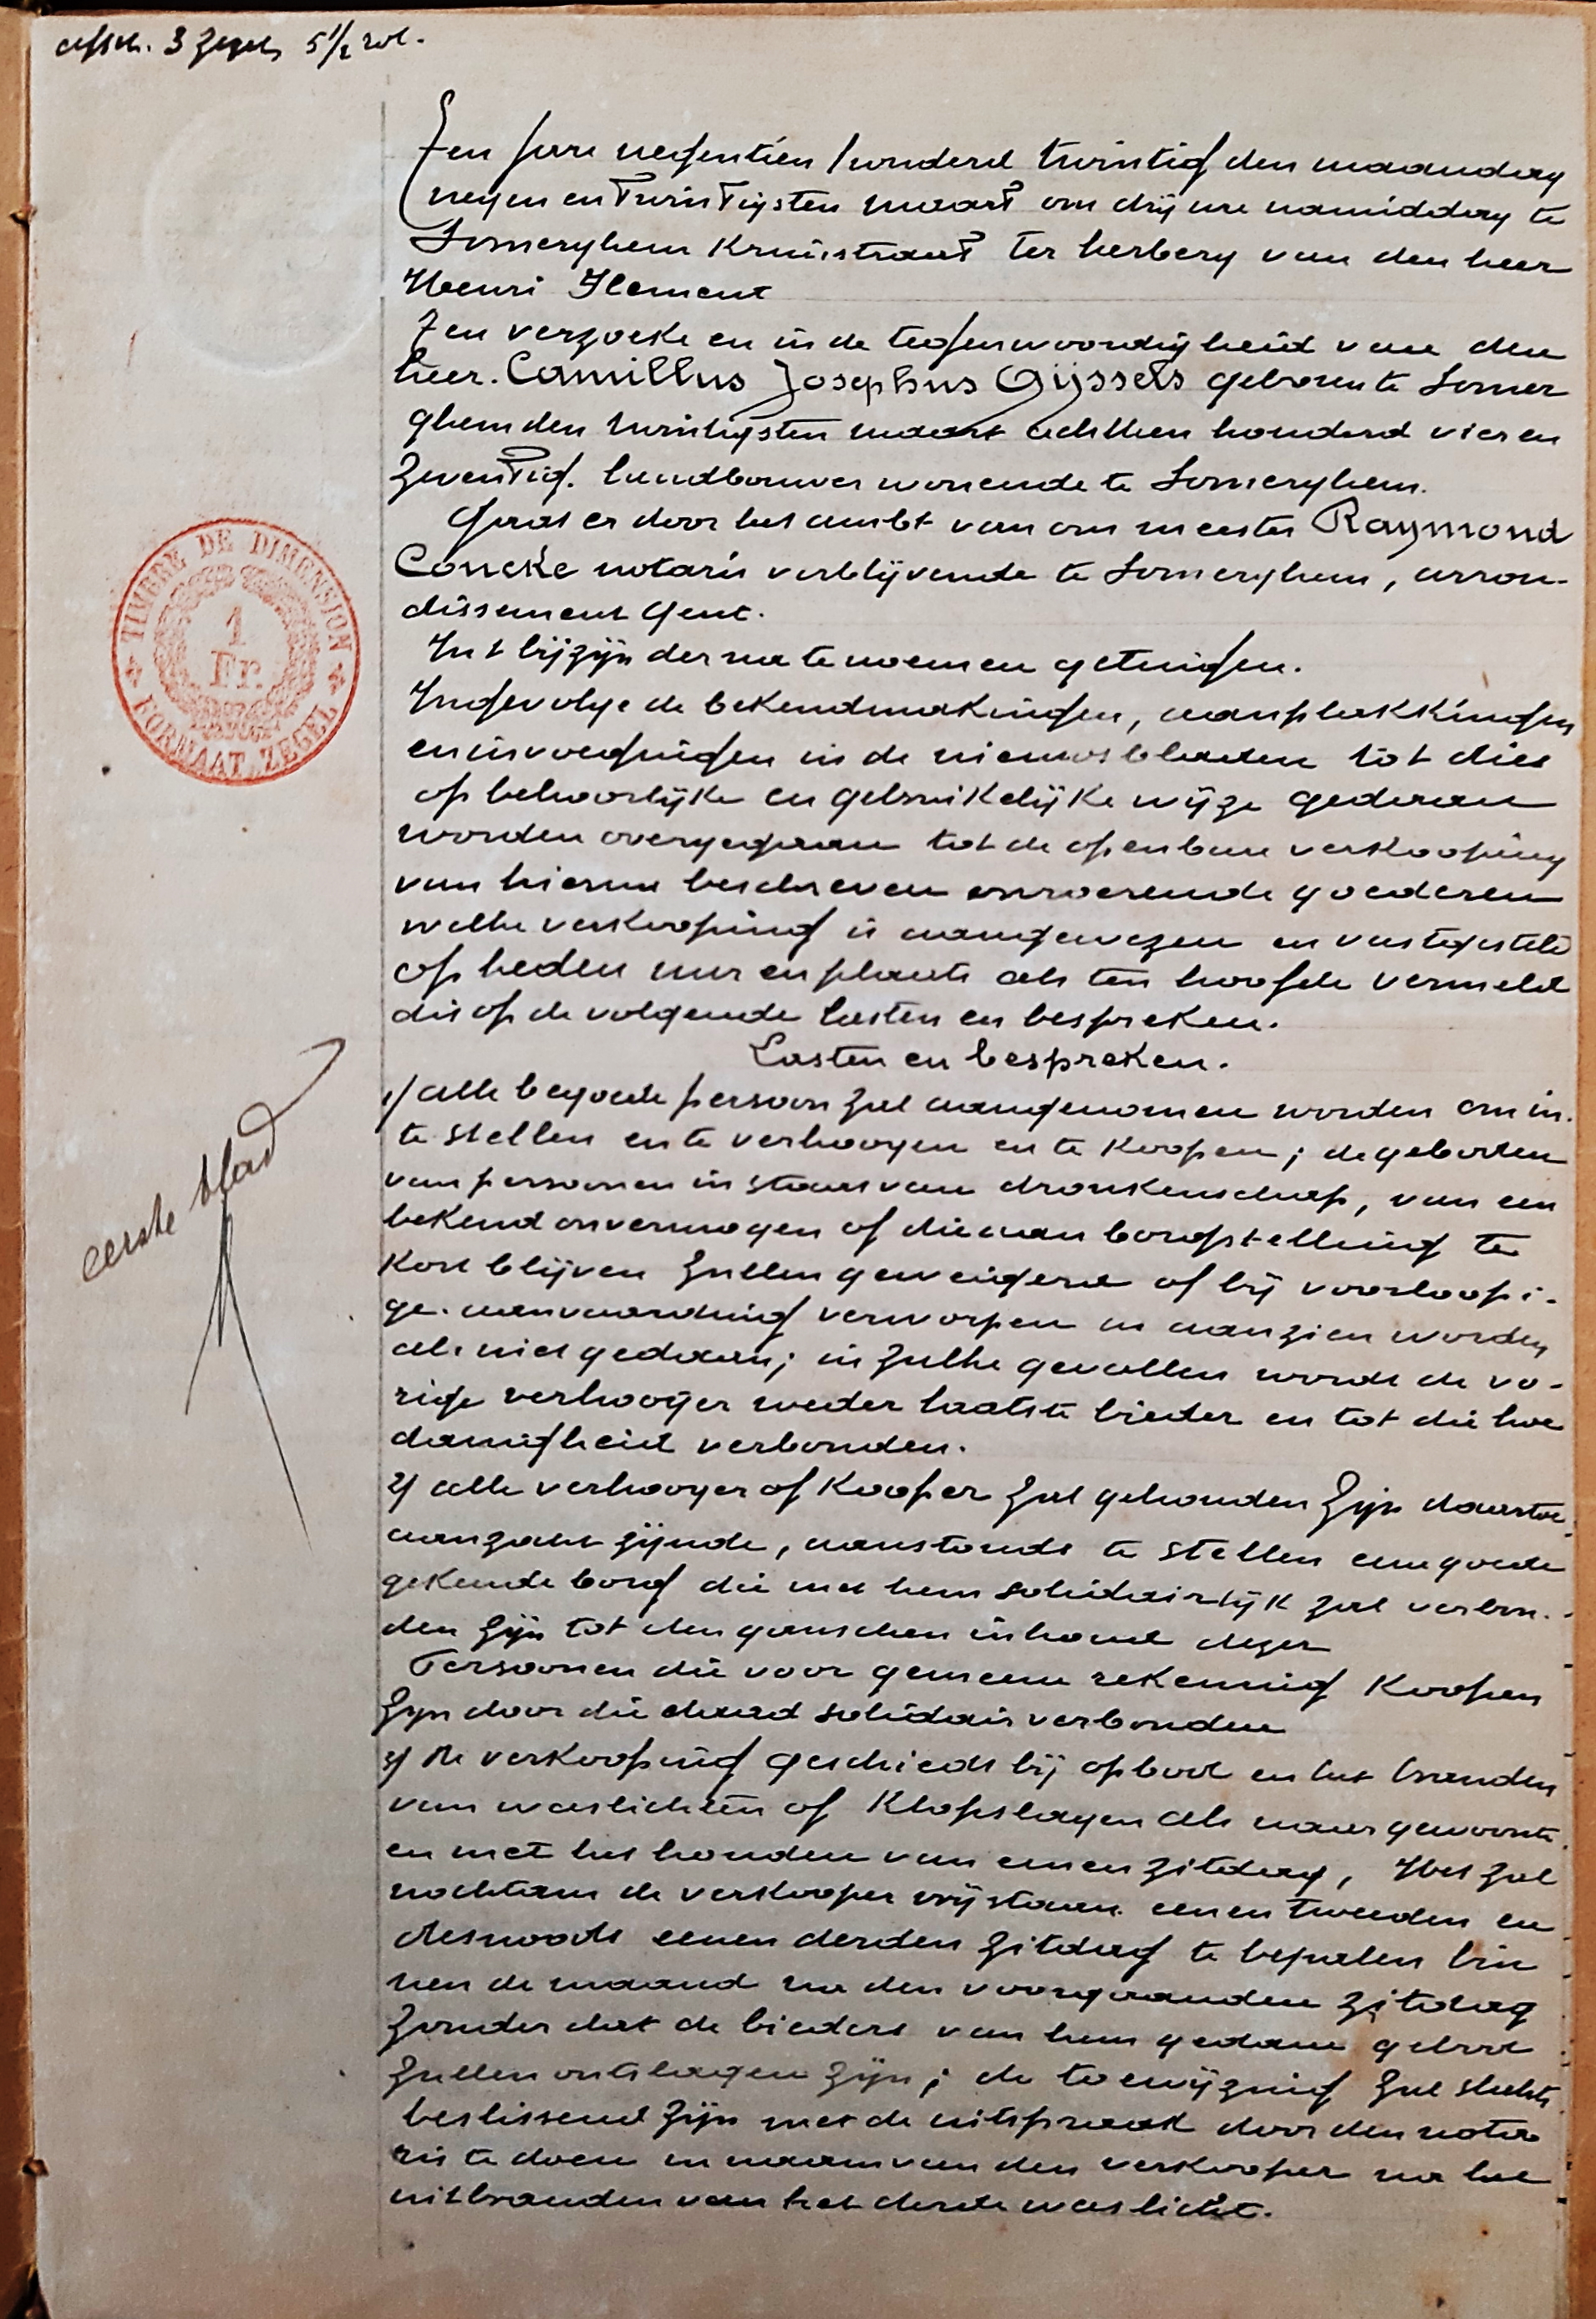 afsch. 3 zegels 5 1/2 rol.
Ten jare negentien honderd twintig den maandag
negen en twintigsten maart om drij ure namiddag te
Somerghem Kruisstraat ter herberg van den heer
Henri Clement
Ten verzoeke en in de tegenwoordigheid van den
heer. Camillus Josephus Gijssels geboren te Somer
ghem den twintigsten maart achttien honderd vier en
zeventig. landbouwer wonende te Somerghem.
Gaat er door het ambt van ons meester Raymond
Concke notaris verblijvende te Somerghem, arron-
dissement Gent.
In 't bijzijn der na te noemen getuigen.
Ingevolge de bekendmakingen, aanplakkingen
en invoegingen in de nieuwsbladen tot dies
op behoorlijke en gebruikelijke wijze gedaan
worden overgegaan tot de openbare verkooping
van hierna beschreven onroerende goederen
welke verkooping is aangewezen en vastgesteld
op heden uur en plaats als ten hoofde vermeld
dit op de volgende lasten en bespreken.
Lasten en bespreken.
1) alle begoede persoon zal aangenomen worden om in
te stellen en te verhoogen en te koopen; de geboden
van personen in staat van dronkenschap, van een
bekend onvermogen of die aan borgstelling te
kort blijven zullen geweigerd of bij voorloopi-
ge. aanvaarding verworpen en aanzien worden
als niet gedaan; in zulke gevallen wordt de vo-
rige verhooger weder laatste bieder en tot die hoe
danigheid verbonden.
2) alle verhooger of kooper zal gehouden zijn daartoe
aanzocht zijnde, aanstonds te stellen eene goede
gekende borg die met hem solidairlijk zal verbon-
den zijn tot den ganschen inhoud dezer
Persoonen die voor gemeene rekening koopen
zijn door die daad solidair verbonden
3) De verkooping geschiedt bij opbod en het branden
van waslichten of klopslagen als naar gewoonte
en met het houden van eenen zitdag, Het zal
nochtans de verkooper vrijstaan eenen tweeden en
desnoods eenen derden zitdag te bepalen bin
nen de maand na den voorgaanden zitdag
zonder dat de bieders van hun gedane gebod
zullen ontslagen zijn; de toewijzing zal slechts
beslissend zijn met de uitspraak door den nota
ris te doen in naam van den verkooper na het
uitbranden van het derde waslicht.
eerste blad
TIMBRE DE DIMENSION
1
Fr.
FORMAAT ZEGEL